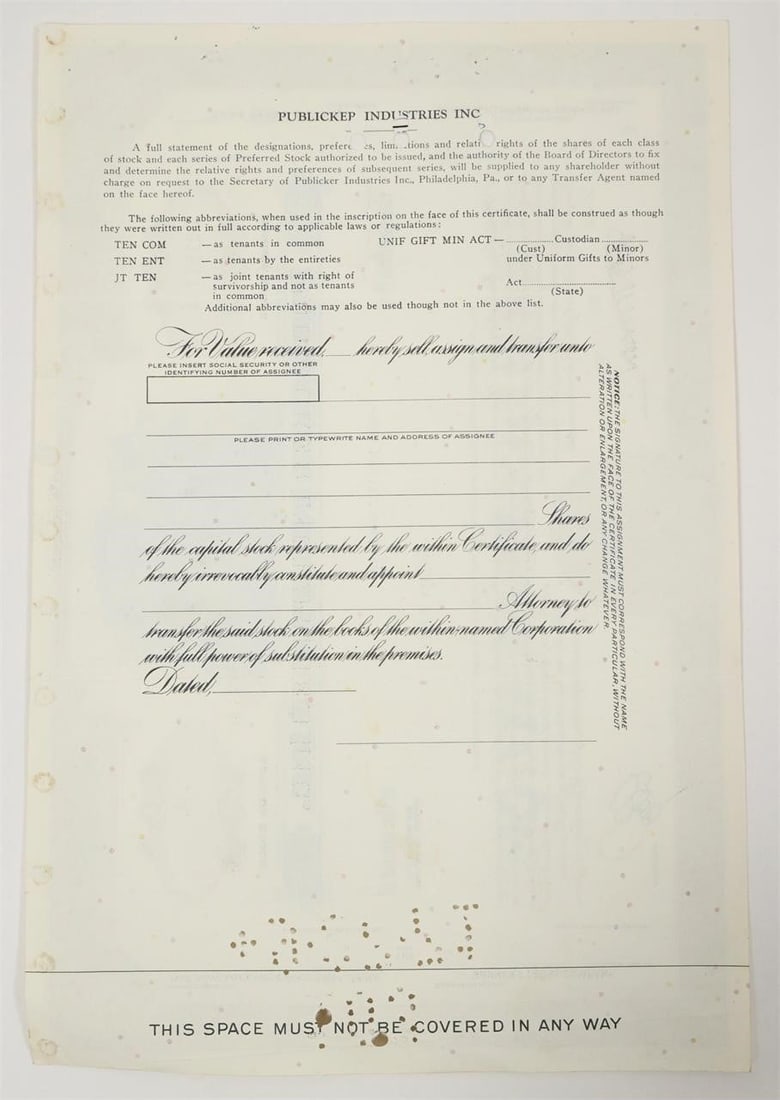 PUBLICKEP INDUSTRIES INC
A full statement of the designations, limitations and relative rights of the shares of each class
of stock and each series of Preferred Stock authorized to be issued, and the authority of the Board of Directors to fix
and determine the relative rights and preferences of subsequent series, will be supplied to any shareholder without
charge on request to the Secretary of Publicker Industries Inc., Philadelphia, Pa., or to any Transfer Agent named
on the face hereof.
The following abbreviations, when used in the inscription on the face of this certificate, shall be construed as though
they were written out in full according to applicable laws or regulations:
TEN COM —as tenants in common UNIF GIFT MIN ACT— ................Custodian................
(Cust) (Minor)
TEN ENT —as tenants by the entireties under Uniform Gifts to Minors
JT TEN —as joint tenants with right of
survivorship and not as tenants Act................................
in common (State)
Additional abbreviations may also be used though not in the above list.
For Value received, hereby sell, assign and transfer unto
PLEASE INSERT SOCIAL SECURITY OR OTHER
IDENTIFYING NUMBER OF ASSIGNEE
PLEASE PRINT OR TYPEWRITE NAME AND ADDRESS OF ASSIGNEE
Shares
of the capital stock represented by the within Certificate, and do
hereby irrevocably constitute and appoint
Attorney to
transfer the said stock on the books of the within-named Corporation
with full power of substitution in the premises.
Dated,
NOTICE: THE SIGNATURE TO THIS ASSIGNMENT MUST CORRESPOND WITH THE NAME
AS WRITTEN UPON THE FACE OF THE CERTIFICATE IN EVERY PARTICULAR, WITHOUT
ALTERATION OR ENLARGEMENT, OR ANY CHANGE WHATEVER.
THIS SPACE MUST NOT BE COVERED IN ANY WAY